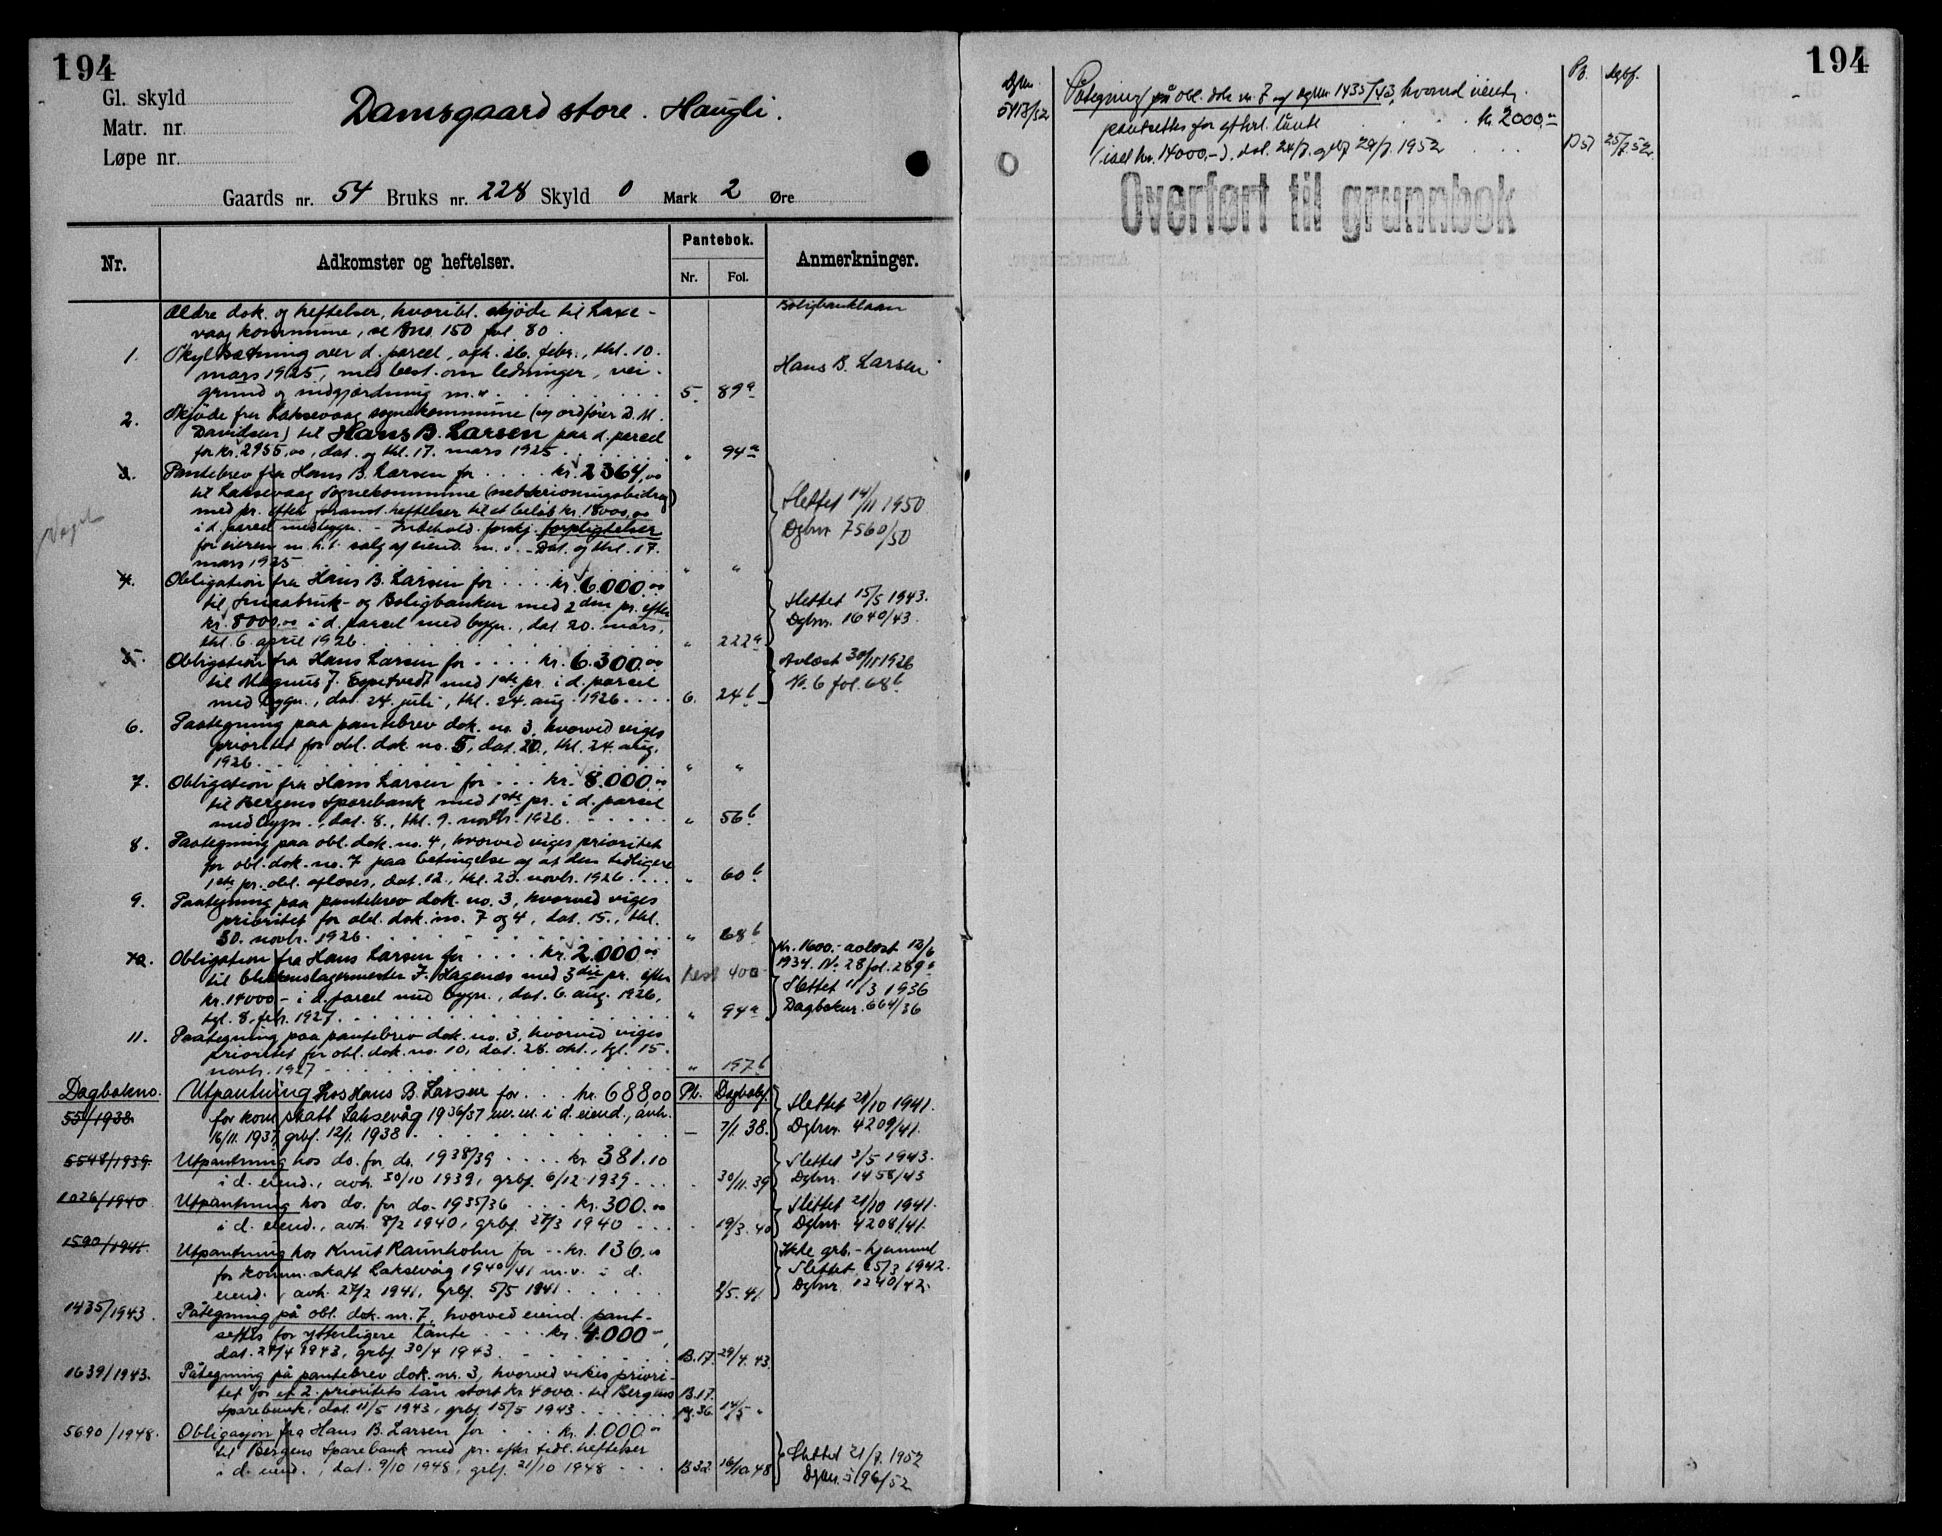 194
Gl. skyld
Matr. nr.
Løpe nr.
Damsgaard store. Haugli.
Gaards nr. 54 Bruks nr. 228 Skyld 0 Mark 2 Øre
Nr. Adkomster og heftelser. Pantebok. Nr. Fol. Anmerkninger.
Ældre dok. og heftelser, hvoribl. skjøde til Laxe-
vaag kommune, se Bno 150 fol. 80.
Boligbanklaan
1. Skyldsætning over d. parcel, afh. 26. febr., thl. 10.
mars 1925, med best. om ledninger, vei-
grund og indgjærdning m.v. 5. 89a
Hans B. Larsen
2. Skjøde fra Laksevaag sognekommune (v/ ordfører D. M.
Davidsen) til Hans B. Larsen paa d. parcel
for kr. 2955,00, dat. og thl. 17. mars 1925 " 94a
3. Pantebrev fra Hans B. Larsen for kr. 2364,00
til Laksevaag Sognekommune (nedskrivningsbidrag)
med pr. efter foranst. heftelser til et beløb kr. 18000,00
i d. parcel med bygn. - Indehold. forskj. forpligtelser
for eieren m.h.t. salg af eiend. m.v. - Dat. og thl. 17.
mars 1925 " "
Slettet 14/11 1950
Dgbnr 7560/50
4. Obligation fra Hans B. Larsen for kr. 6.000.00
til Smaabruk- og Boligbanken med 2den pr. efter
kr. 8000.00 i d. parcel med bygn., dat. 20. mars,
thl. 6. april 1926. " 222a
Slettet 15/5 1943.
Dgbnr. 1640/43.
5. Obligation fra Hans Larsen for kr. 6.300.00
til Magnus J. Espetvedt med 1ste pr. i d. parcel
med bygn., dat. 24. juli, thl. 24. aug. 1926. 6. 24b
Avlæst 30/11 1926
No. 6 fol. 68b
6. Paategning paa pantebrev dok. no. 3, hvorved viges
prioritet for obl. dok. no. 5, dat. 20., thl. 24. aug.
1926. " "
7. Obligation fra Hans Larsen for kr. 8.000.00
til Bergens Sparebank med 1ste pr. i d. parcel
med bygn., dat. 8., thl. 9. novbr. 1926. " 56b
8. Paategning paa obl. dok. no. 4, hvorved viges prioritet
for obl. dok. no. 7 paa betingelse af at den tidligere
1ste pr. obl. afløses, dat. 12., thl. 23. novbr. 1926. " 60b
9. Paategning paa pantebrev dok. no. 3, hvorved viges
prioritet for obl. dok. no. 7 og 4, dat. 15., thl.
30. novbr. 1926. " 68b
10. Obligation fra Hans Larsen for kr. 2.000.00
til blikkenslagermester J. Hagenæs med 3die pr. efter Rest 400
kr. 14000,- i d. parcel med bygn., dat. 6. aug. 1926,
tgl. 8. febr. 1927. " 94a
Kr. 1600.- avlæst 12/6
1934. No. 28 fol. 289a
Slettet 11/3 1936
Dagboknr. 664/36
11. Paategning paa pantebrev dok. no. 3, hvorved viges
prioritet for obl. dok. no. 10, dat. 28. okt., tgl. 15.
novbr. 1927 " 197b
Dagbokno. Utpantning hos Hans B. Larsen for kr. 688,00 Pb. Dagbokf.
55/1938 for kom. skatt Laksevåg 1936/37 m.m. i d. eiend., avh.
16/11. 1937, grbf. 12/1. 1938 — 7/1. 38.
Slettet 21/10 1941.
Dgbnr. 4209/41.
5548/1939. Utpantning hos do. for do. 1938/39 kr. 381.10
i d. eiend., avh. 30/10 1939, grbf. 6/12 1939. 30/11. 39
Slettet 3/5 1943.
Dgbnr. 1458/43
1026/1940 Utpantning hos do. for do. 1935/36 kr. 300.00
i d. eiend., avh. 8/2 1940, grbf. 27/3 1940 19/3. 40
Slettet 21/10 1941.
Dgbnr. 4208/41.
1590/1941. Utpantning hos Knut Raunholm for kr. 136.00
for komm. skatt Laksevåg 1940/41 m.v. i d.
eiend., avh. 27/2 1941, grbf. 5/5 1941. 2/5. 41
Ikke grb.-hjemmel
Slettet 25/3 1942.
Dgbnr. 1240/42.
1435/1943. Påtegning på obl. dok. nr. 7, hvorved eiend. pant-
settes for ytterligere lånte kr. 4.000
dat. 27/4 1943, grbf. 30/4 1943. B.17. 29/4. 43.
1639/1943. Påtegning på pantebrev dok. nr. 3, hvorved vikes priori-
tet for et 2. prioritets lån stort kr. 4000.- til Bergens B.17.
Sparebank, dat. 11/5 1943, grbf. 15/5 1943 pg. 36. 14/5 "
5690/1948. Obligasjon fra Hans B. Larsen for kr. 1.000.00
til Bergens Sparebank med pr. efter tidl. heftelser
i d. eiend., dat. 9/10 1948, grbf. 21/10 1948 B 32 16/10 48
Slettet 21/7. 1952
Dgbnr. 5196/52
194
Dgbnr. Pb. Dgbf.
5413/52 Påtegning på obl. dok nr. 7 og dgbnr 1435/43, hvorved eiend.
pantsettes for ytterl. lånte kr. 2000,00
(ialt kr. 14000,-), dat. 24/7. grbf 29/7. 1952 B 51 25/7. 52.
Overført til grunnbok